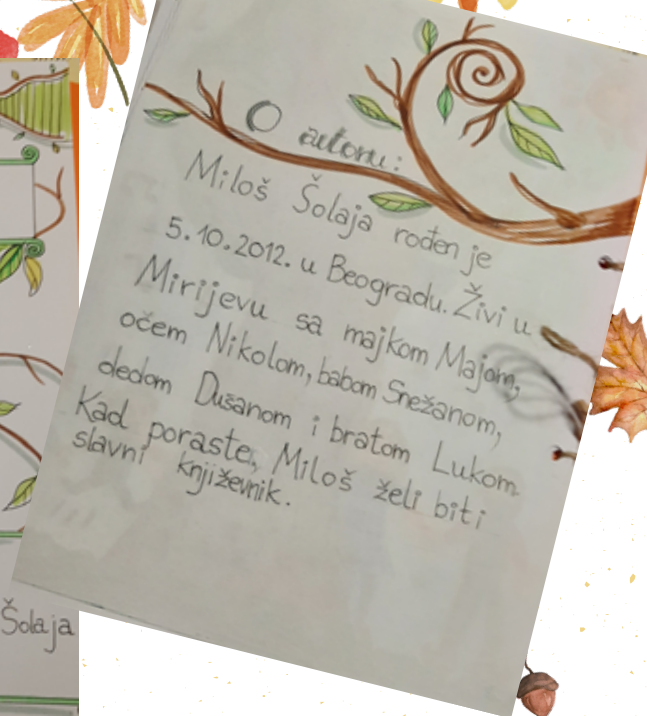 O autoru:
Miloš Šolaja rođen je
5.10.2012. u Beogradu. Živi u
Mirijevu sa majkom Majom,
očem Nikolom, babom Snežanom,
dedom Dušanom i bratom Lukom.
Kad poraste, Miloš želi biti
slavni književnik.
Šolaja